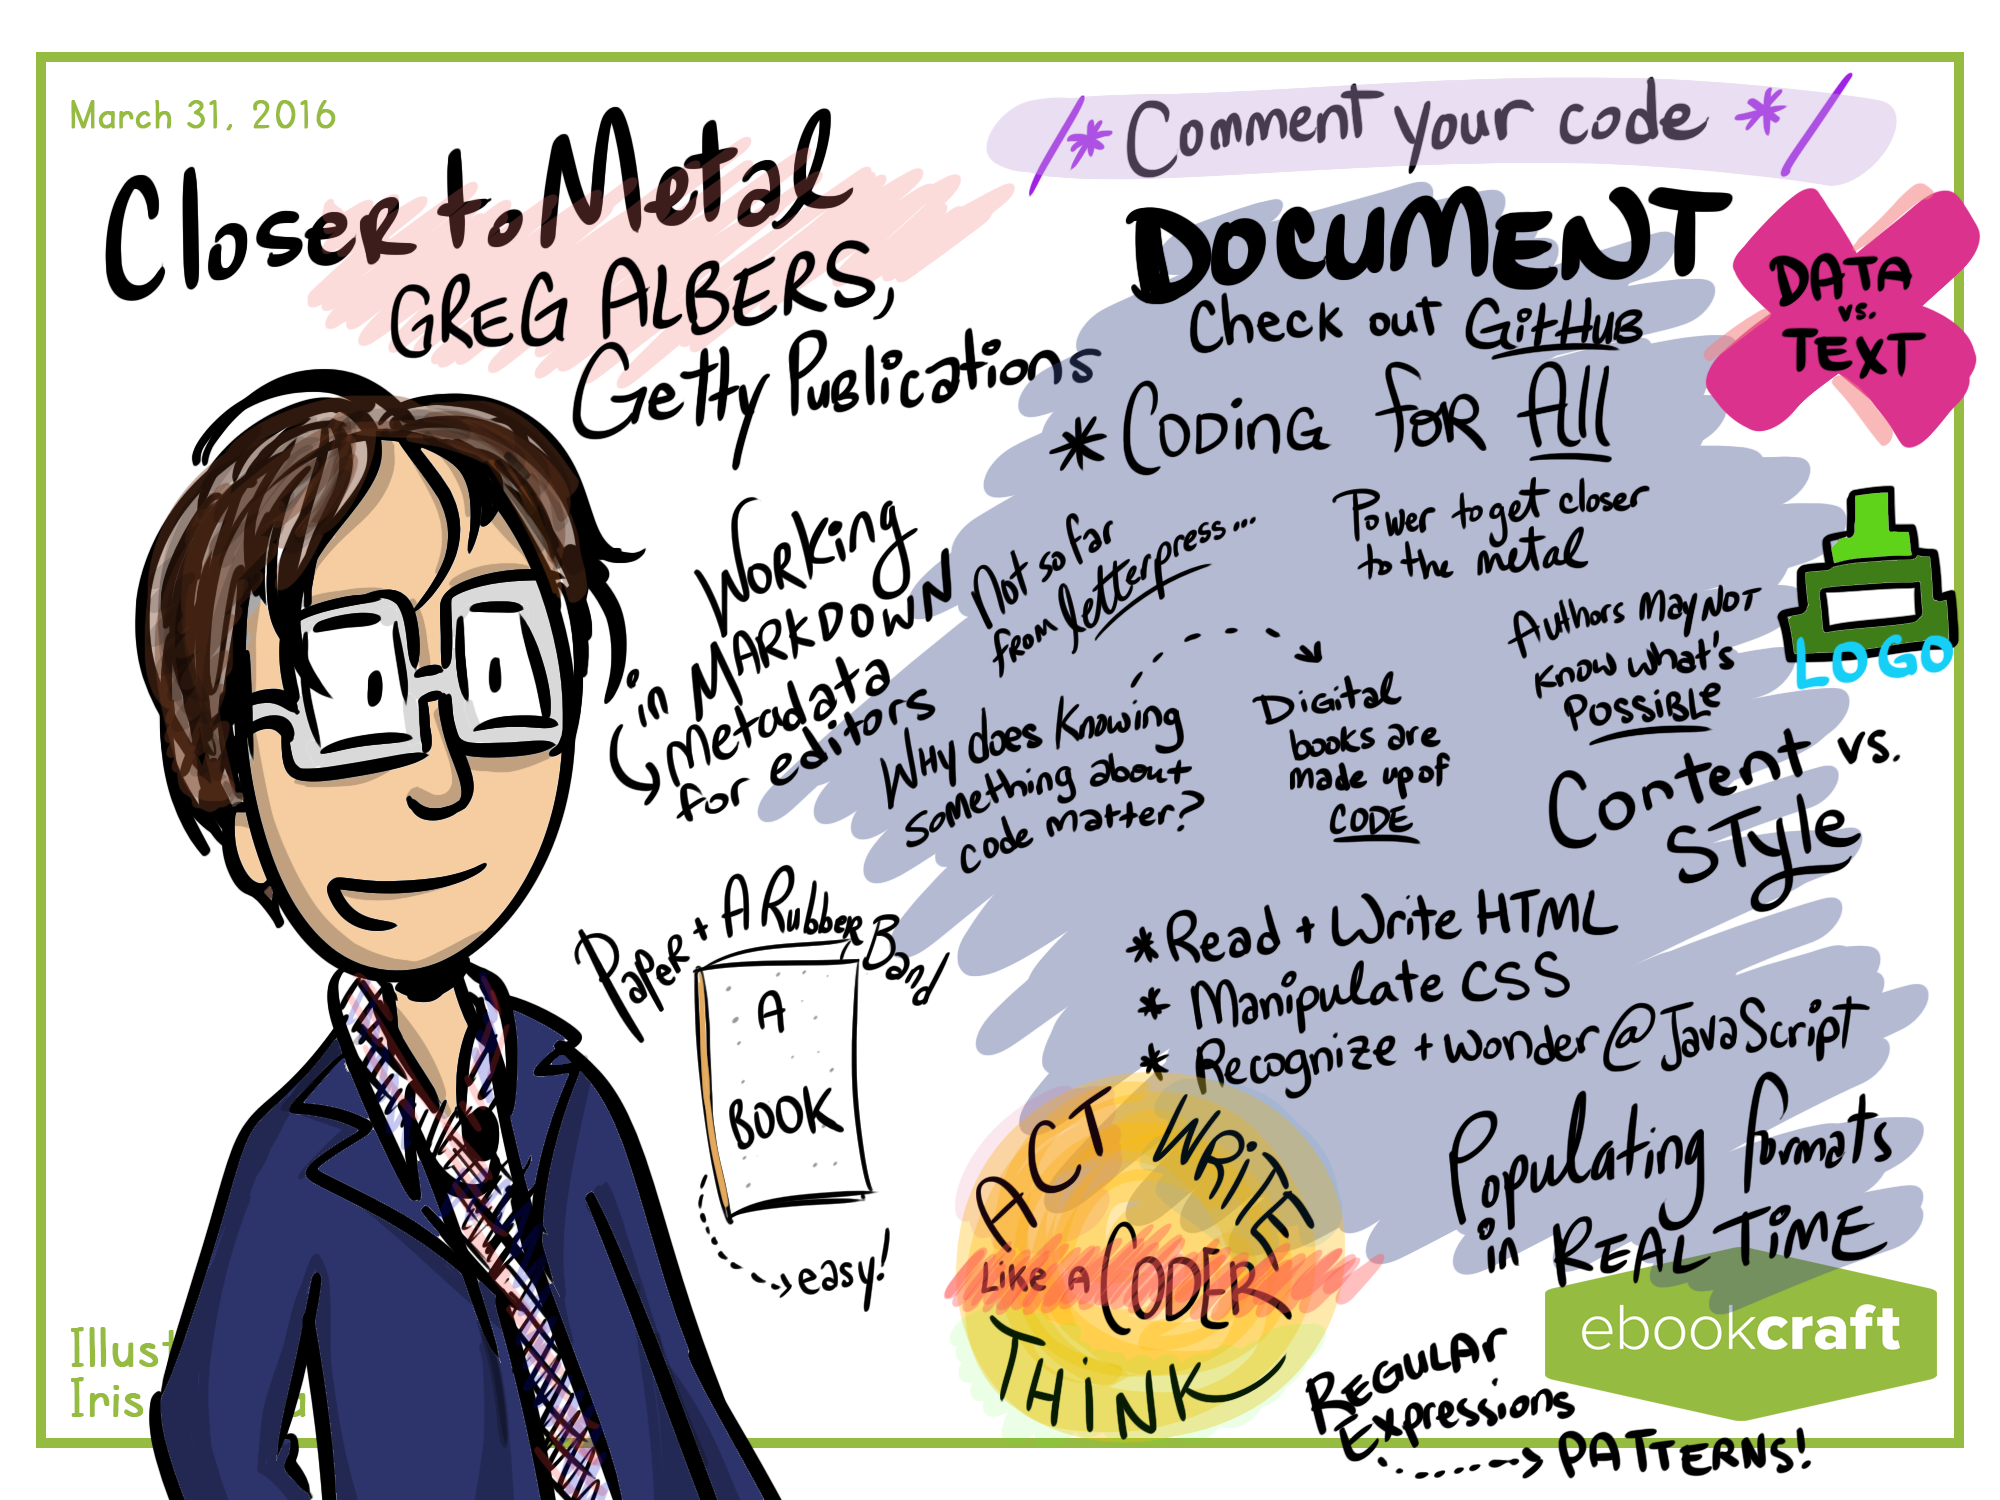 March 31, 2016
Closer to Metal
GREG ALBERS,
Getty Publications
/* Comment your code */
DOCUMENT
Check out GitHub
* CODING for All
DATA
vs.
TEXT
Working
in MARKDOWN
metadata
for editors
Not so far
from letterpress...
Power to get closer
to the metal
Authors May Not
Know what's
POSSIBLE
LOGO
Why does Knowing
something about
code matter?
Digital
books are
made up of
CODE
Content vs.
STyle
Paper + A Rubber Band
A
BOOK
easy!
* Read + Write HTML
* Manipulate CSS
* Recognize + wonder @ JavaScript
Populating formats
in REAL TIME
ACT
WRITE
Like A CODER
THINK
ebookcraft
REGULAR
Expressions
PATTERNS!
Iris